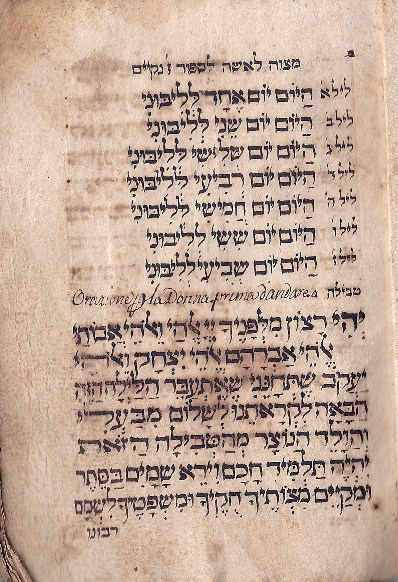 מצוה לאשה לספור ז' נקיים
ליל א היום יום אֶחָד לְלִיבּוּנִי
ליל ב הַיּוֹם יוֹם שֵׁנִי לְלִיבּוּנִי
ליל ג הַיּוֹם יוֹם שְׁלִישִׁי לְלִיבּוּנִי
ליל ד הַיּוֹם יוֹם רְבִיעִי לְלִיבּוּנִי
ליל ה הַיּוֹם יוֹם חֲמִישִׁי לְלִיבּוּנִי
ליל ו הַיּוֹם יוֹם שִׁשִּׁי לְלִיבּוּנִי
ליל ז הַיּוֹם יוֹם שְׁבִיעִי לְלִיבּוּנִי
Orazione la Donna prima d'andare a טבילה
יְהִי רָצוֹן מִלְּפָנֶיךָ יְיָ אֱלֹהַי וֵאלֹהֵי אֲבוֹתַי
אֱלֹהֵי אַבְרָהָם אֱלֹהֵי יִצְחָק וֵאלֹהֵי
יַעֲקֹב שֶׁתְּחָנֵּנִי שֶׁאֶתְעַבֵּר הַלַּיְלָה הַזֶּה
הַבָּאָה לִקְרָאתֵנוּ לְשָׁלוֹם מִבַּעֲלִי
וְהַוָּלָד הַנּוֹצָר מֵהַטְּבִילָה הַזֹּאת
יִהְיֶה תַּלְמִיד חָכָם וִירֵא שָׁמַיִם בַּסֵּתֶר
וּמְקַיֵּים מִצְוֹתֶיךָ חֻקֶּיךָ וּמִשְׁפָּטֶיךָ לִשְׁמָם
רבונו